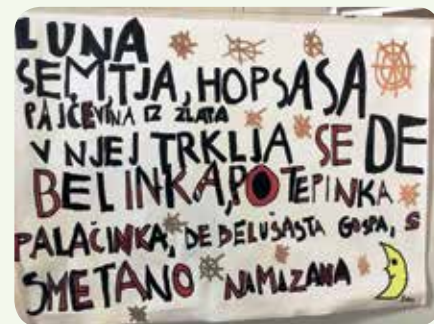 LUNA
SEMTJA, HOPSASA
PAJČEVINA IZ ZLATA
V NJEJ TRKLJA SE DE
BELINKA, POTEPINKA
PALAČINKA, DEBELUŠASTA GOSPA, S
SMETANO NAMAZANA